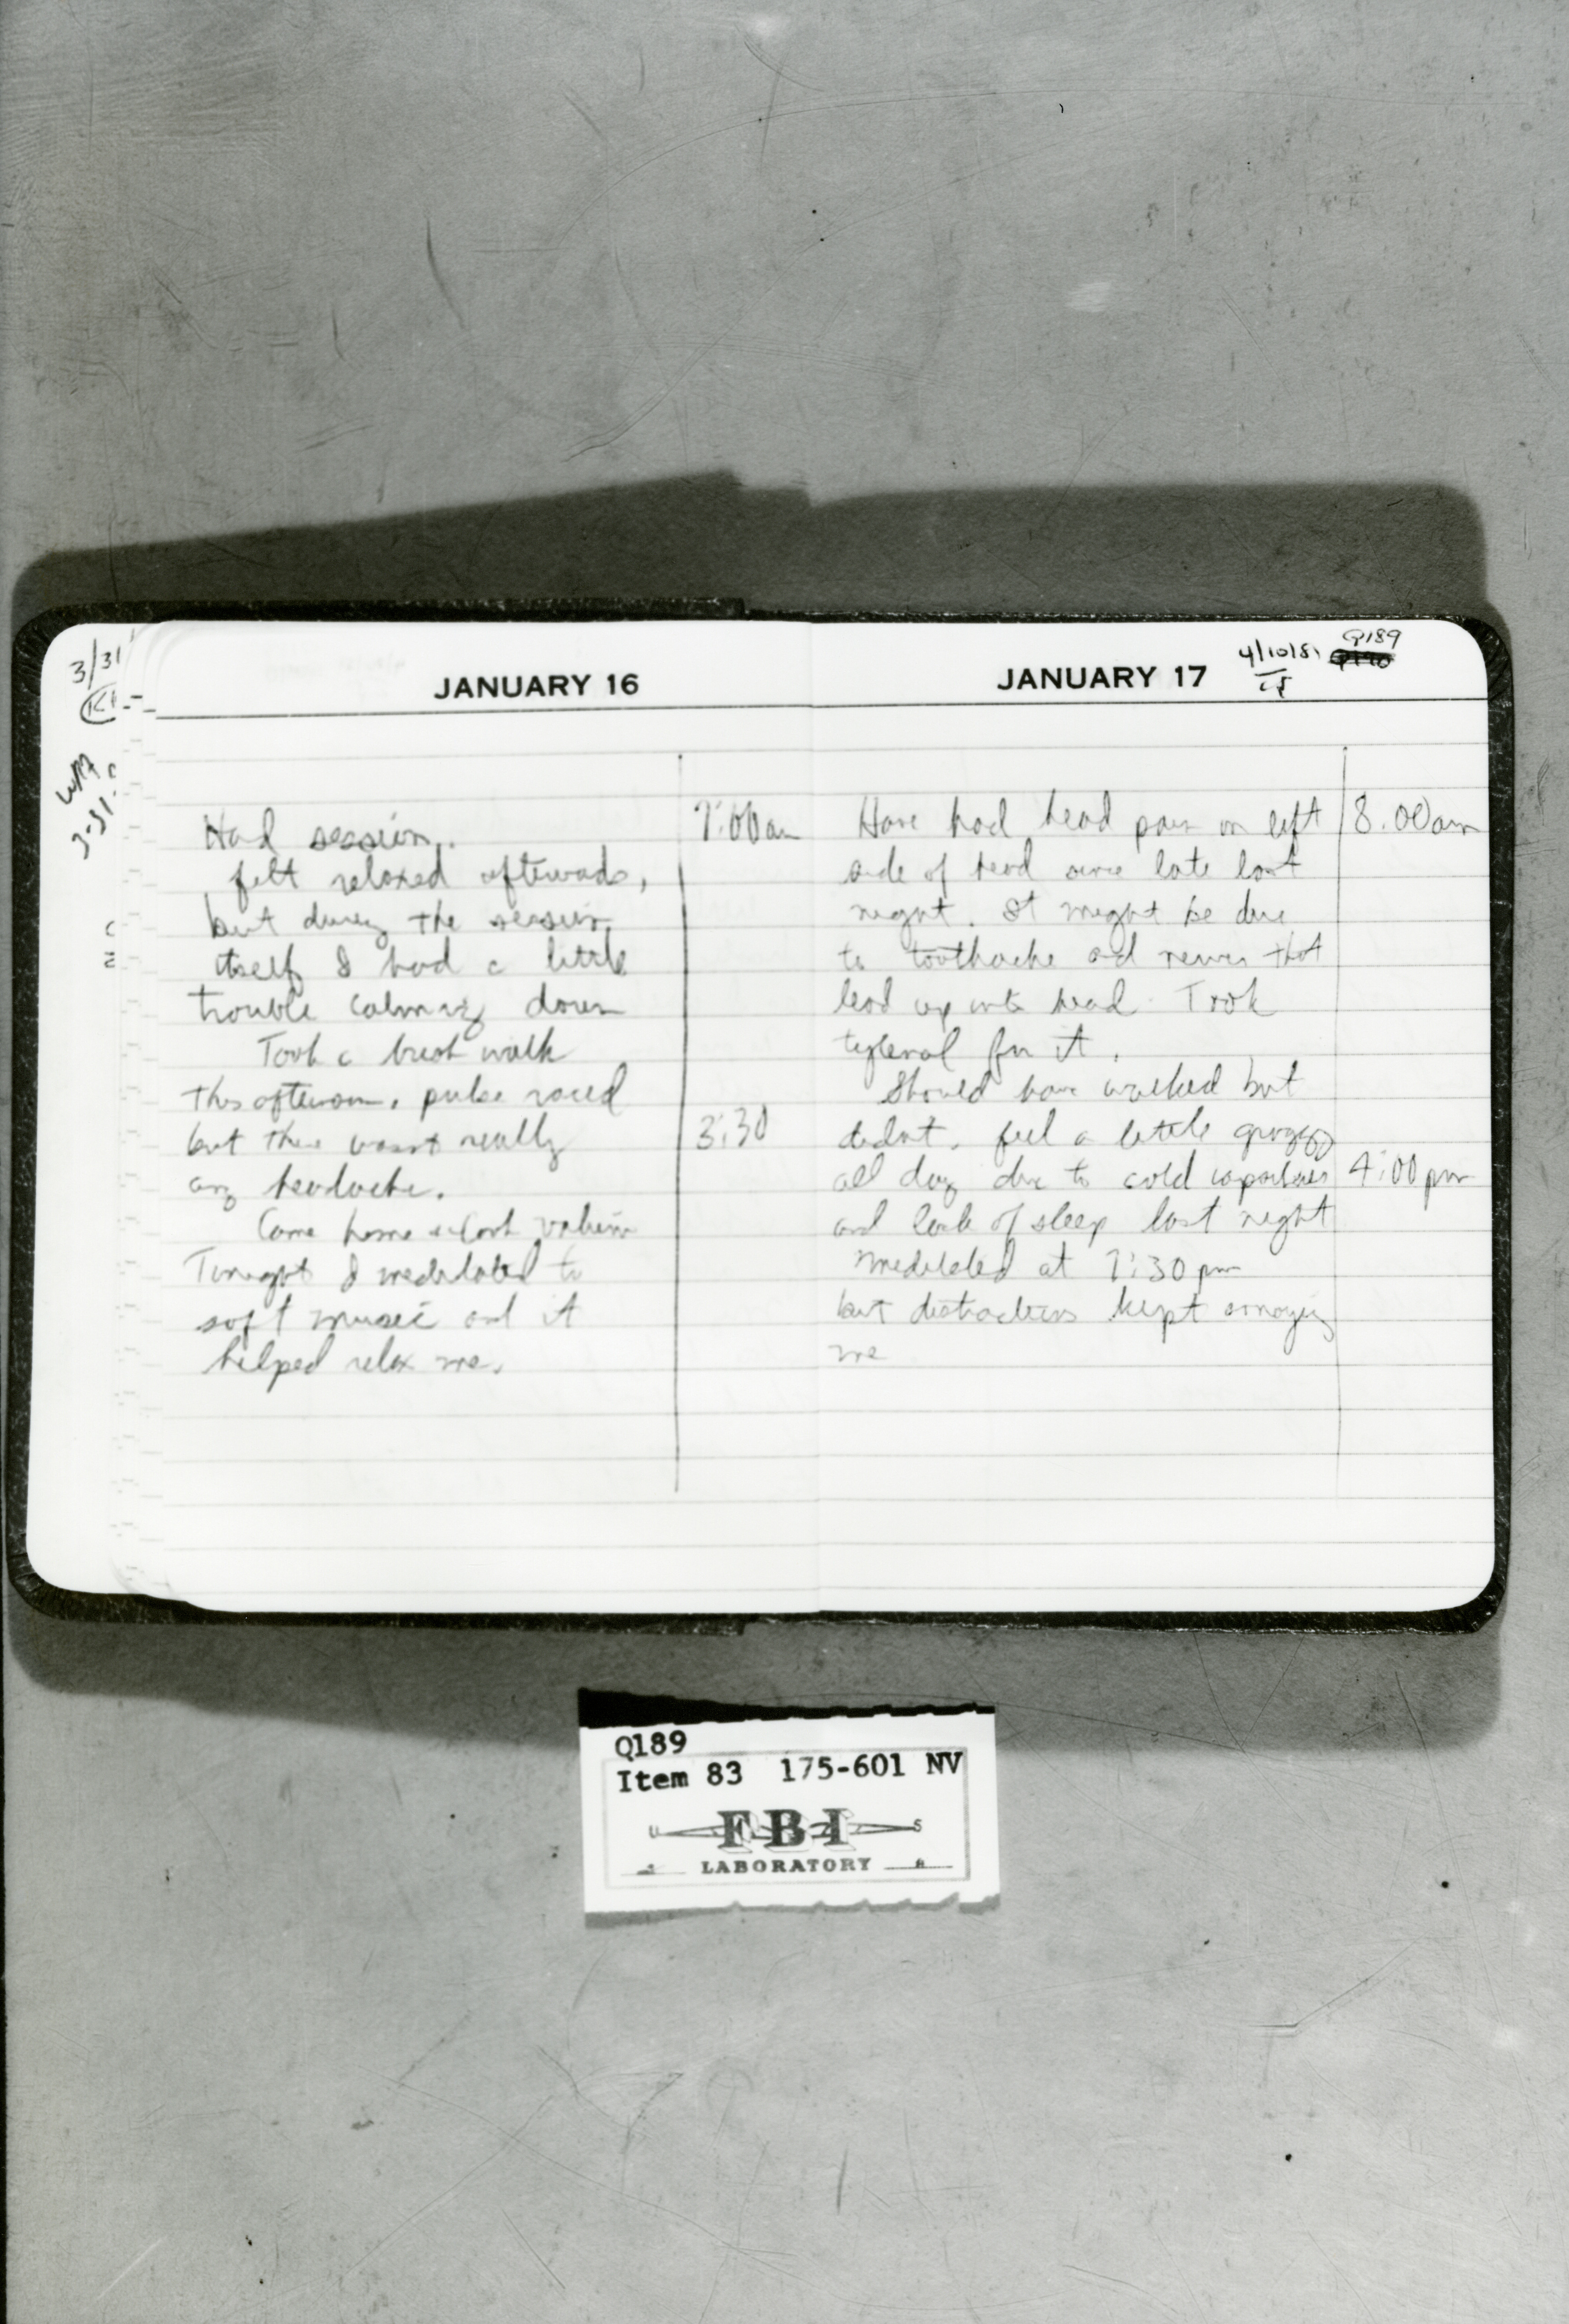 3/31
WM
3-31-
JANUARY 16
Had session.
felt relaxed afterwards,
but during the session
itself I had a little
trouble calming down
Took a brest walk
this afternoon. pulse raced
but there wasnt really
any headache.
Came home & took valium
Tonight I meditated to
soft music and it
helped relax me.
7:00am
3:30
JANUARY 17
4/10/81
Q189
Have had head pain on left
side of head since late last
night. It might be due
to toothache and nerves that
lead up into head. Took
tylenol for it.
Should have walked but
didnt. feel a little groggy
all day due to cold capsules
and lack of sleep last night
meditated at 7:30pm
but distractions kept annoying
me
8:00am
4:00pm
Q189
Item 83 175-601 NV
U S
FBI
LABORATORY